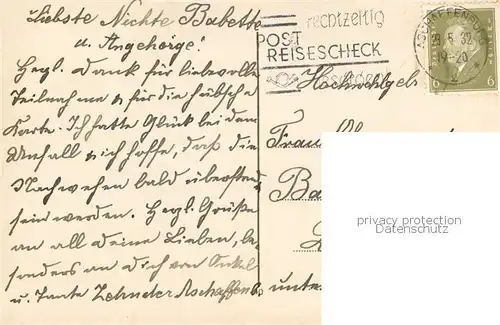 Liebste Nichte Babette
u. Angehörige!
Hrzl. Dank für liebevolle
Teilnahme u für die hübsche
Karte. Ich hatte Glück bei dem
Unfall u ich hoffe, daß die
Nachwehen bald überstanden
sein werden. Hrzl. Grüße
an all deine Lieben, be-
sonders an Dich von Onkel
u. Tante Zehnder Aschaffenbg.
rechtzeitig
POST
REISESCHECK
ASCHAFFENBURG
5.32
19-20
6 6
Hochwohlgeb
Frau
Ba
unter
privacy protection
Datenschutz